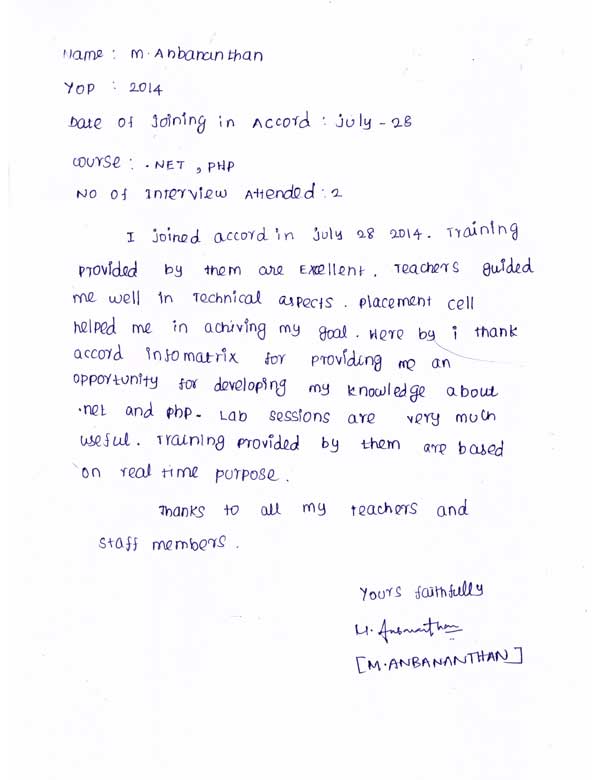 Name : M. Anbananthan
YOP : 2014
Date of Joining in Accord : July - 28
course : .NET , PHP
NO Of Interview Attended : 2
I joined accord in july 28 2014. Training
provided by them are Exellent. Teachers guided
me well in Technical aspects. placement cell
helped me in achiving my goal. Here by i thank
accord infomatrix for providing me an
opportunity for developing my knowledge about
.net and php. Lab sessions are very much
useful. Training provided by them are based
on real time purpose.
Thanks to all my teachers and
staff members.
Yours faithfully
M. Anbananthan
[M.ANBANANTHAN]